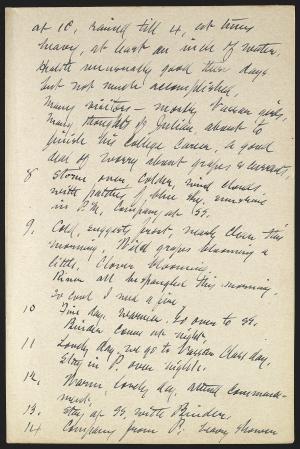 at 10, rained till 4, at times
heavy, at least an inch of water.
Health unusually good these days
but not much accomplished.
Many visitors — mostly Vassar girls.
Many thoughts of Julian about to
finish his College career. A good
deal of worry about grapes & currants.
8 Storm over, colder, wind clouds,
with patches of blue sky, sunshine
in P.M. Company at SS.
9. Cold, suggests frost, nearly clear this
morning. Wild grapes blooming a
little. Clover blooming.
River all bespangled this morning.
So cool I need a fire
10 Fine day. Warmer. Go over to SS.
Binder comes up night,
11 Lovely day, we go to Vassar Class day.
Stay in P. over night.
12. Warm, lovely day, attend Commence-
ment.
13. Stay at SS, with Binder.
14 Company from P. heavy shower